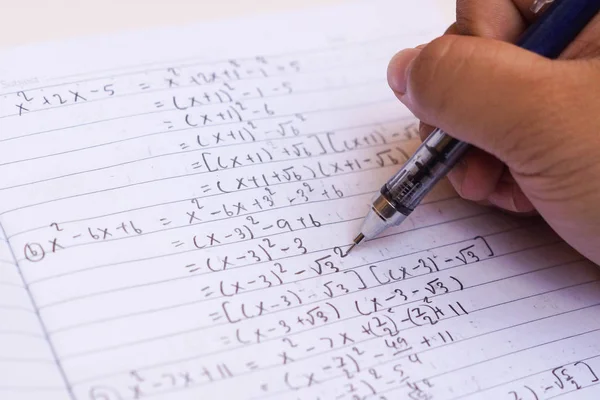 x²+2x-5 = x²+2x+1²-1-5
= (x+1)²-1-5
= (x+1)²-6
= (x+1)²-√6²
= [(x+1)+√6][(x+1)-√6]
= (x+1+√6)(x+1-√6)
(b) x²-6x+6 = x²-6x+3²-3²+6
= (x-3)²-9+6
= (x-3)²-3
= (x-3)²-√3²
= [(x-3)-√3][(x-3)-√3]
= (x-3+√3)(x-3-√3)
x²-7x+11 = x²-7x+(7/2)²-(7/2)²+11
= (x-7/2)²-49/4+11